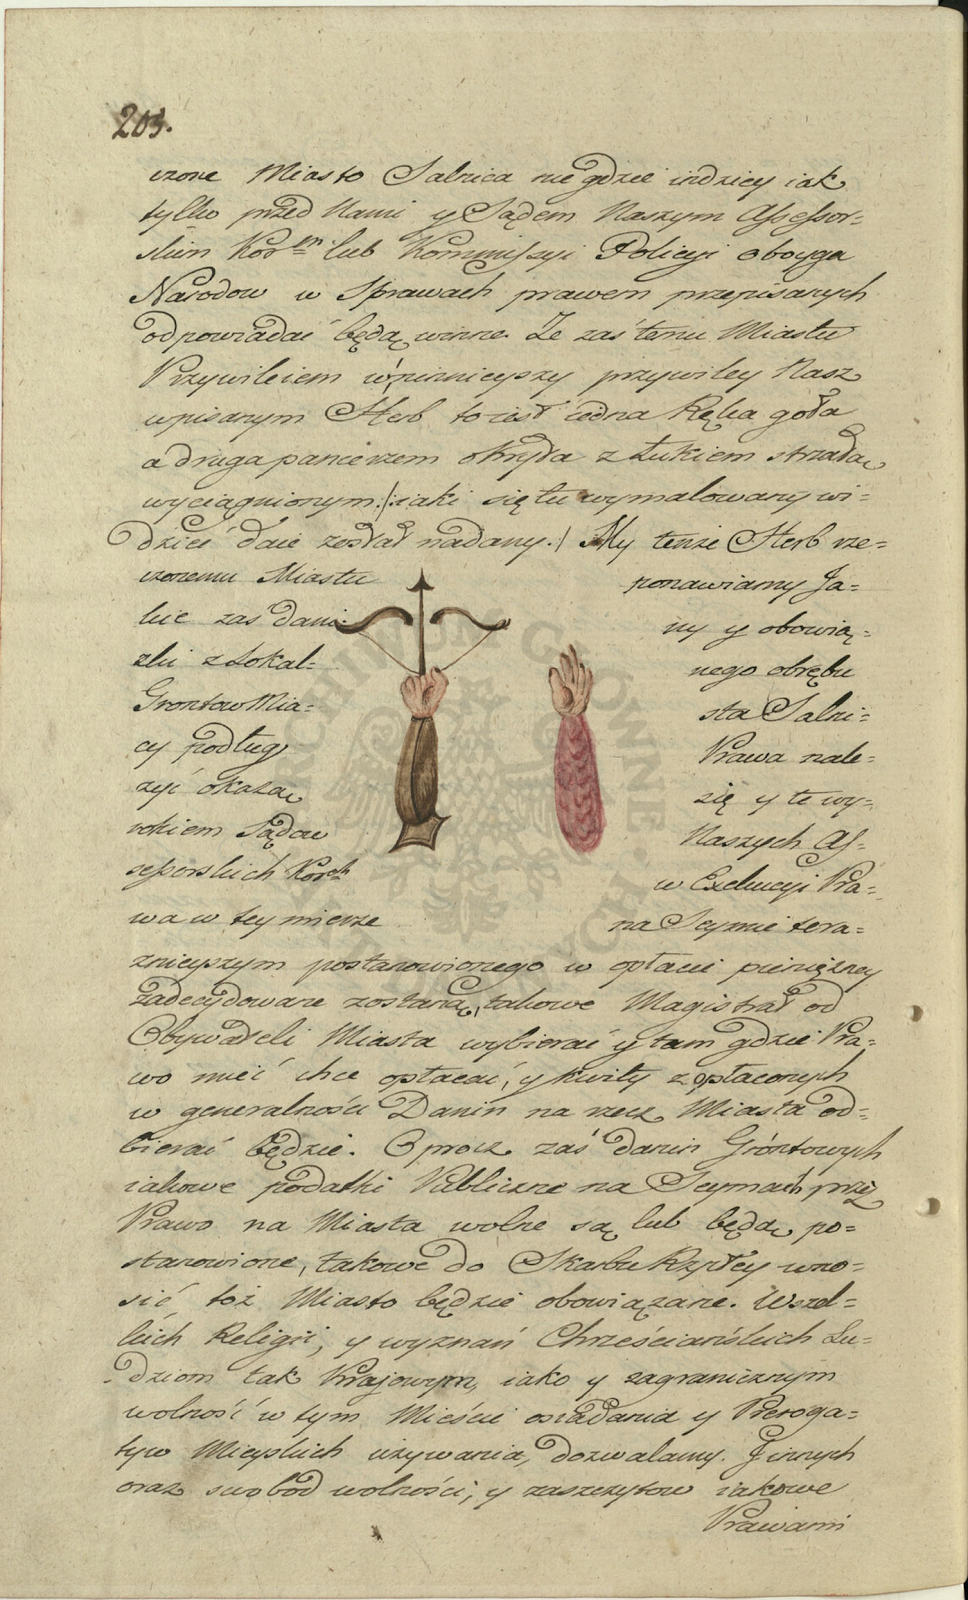 203.
czone Miasto Salnica nie gdzie indziey iak
tylko przed Nami y Sądem Naszym Assessor=
skim Kor^nym lub Kommissyi Policyi oboyga
Narodow w Sprawach prawem przepisanych
odpowiadać będą winne. Ze zaś temu Miastu
Przywileiem w pierwszy przywiley Nasz
wpisanym Herb to iest iedna Ręka goła
a druga pancerzem okryta z Łukiem strzałą
wyciągnionym /: iaki się tu wymalowany wi=
dzieć daie został nadany. / My tenże Herb rze=
czonemu Miastu ponawiamy Ja=
kie zas dani= ny y obowią=
zki z Lokal= nego obrębu
Grontow Mia= sta Salni=
cy podług Prawa nale=
zyć okażą się y te wy=
rokiem Sądow Naszych As=
sessorskich Kor^ch w Exekucyi Pra=
wa w tey mierze na Seymie tera=
znieyszym postanowionego w opłacie pieniężney
zadecydowane zostaną, takowe Magistrat od
Obywateli Miasta wybierać y tam gdzie Pra=
wo mieć chce opłacać, y kwity z opłaconych
w generalności Danin na rzecz Miasta od=
bierać będzie. Oprocz zaś danin Gróntowych
iakowe podatki Publiczne na Seymach przez
Prawo na Miasta wolne są lub będą po=
stanowione, takowe do Skarbu Rzpltey wno=
sić toż Miasto będzie obowiązane. Wszel=
kich Religii, y wyznań Chrześciańskich Lu=
dziom tak Krajowym, iako y zagranicznym
wolność w tym Mieście osiadania y Preroga=
tyw Mieyskich używania, dozwalamy. Jinnych
oraz swobod wolności, y zaszczytow iakowe
Prawami